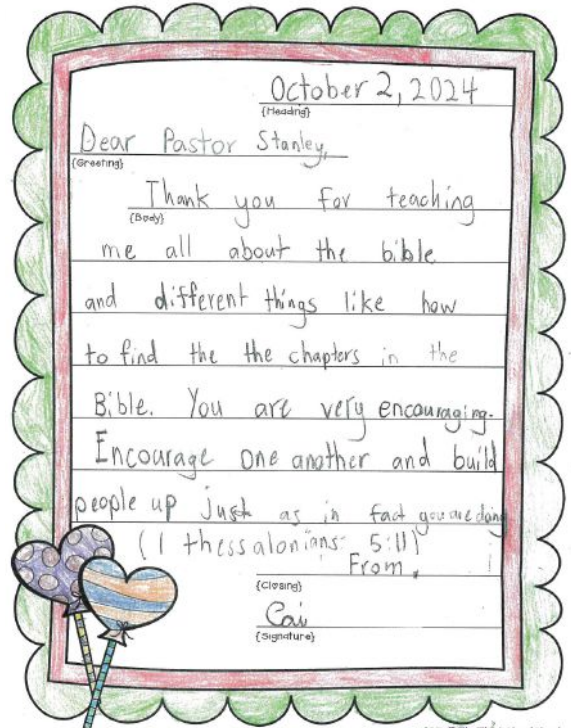 October 2, 2024
{Heading}
Dear Pastor Stanley,
{Greeting}
Thank you for teaching
{Body}
me all about the bible
and different things like how
to find the the chapters in the
Bible. You are very encouraging.
Encourage one another and build
people up just as in fact you are doing
(1 thessalonians: 5:11)
From,
{Closing}
Cai
{Signature}